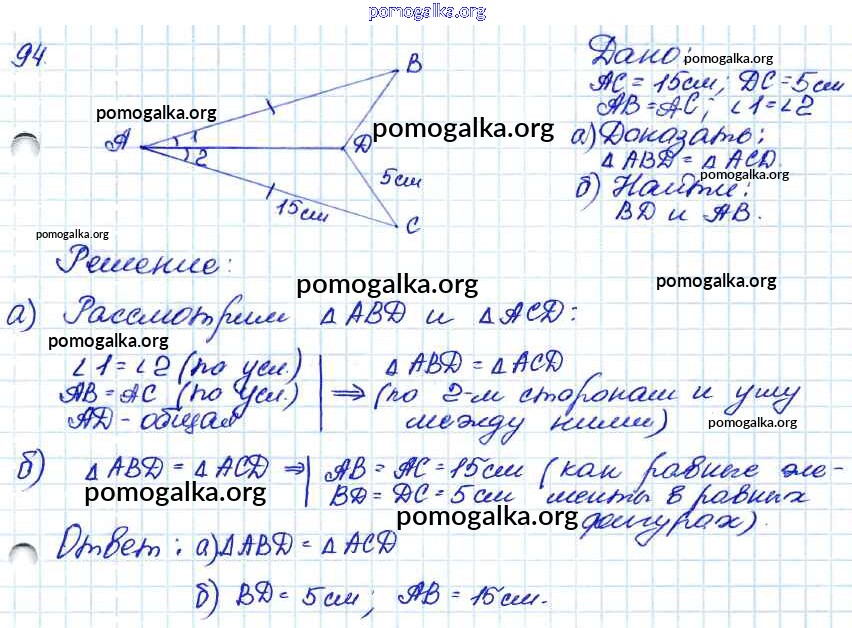 pomogalka.org
94.
B
A
1
2
D
5см
15см
C
pomogalka.org
pomogalka.org
pomogalka.org
Дано: pomogalka.org
AC = 15см; DC = 5см
AB = AC; ∠1 = ∠2
а) Доказать:
△ ABD = △ ACD.
pomogalka.org
б) Найти:
BD и AB.
Решение:
pomogalka.org
pomogalka.org
а) Рассмотрим △ ABD и △ ACD:
pomogalka.org
∠1 = ∠2 (по усл.) | △ ABD = △ ACD
AB = AC (по усл.) | ⇒ (по 2-м сторонам и углу
AD - общая | между ними)
pomogalka.org
б) △ ABD = △ ACD ⇒ | AB = AC = 15см (как равные эле-
pomogalka.org
BD = DC = 5см менты в равных
pomogalka.org
фигурах).
Ответ: а) △ABD = △ ACD
б) BD = 5см; AB = 15см.